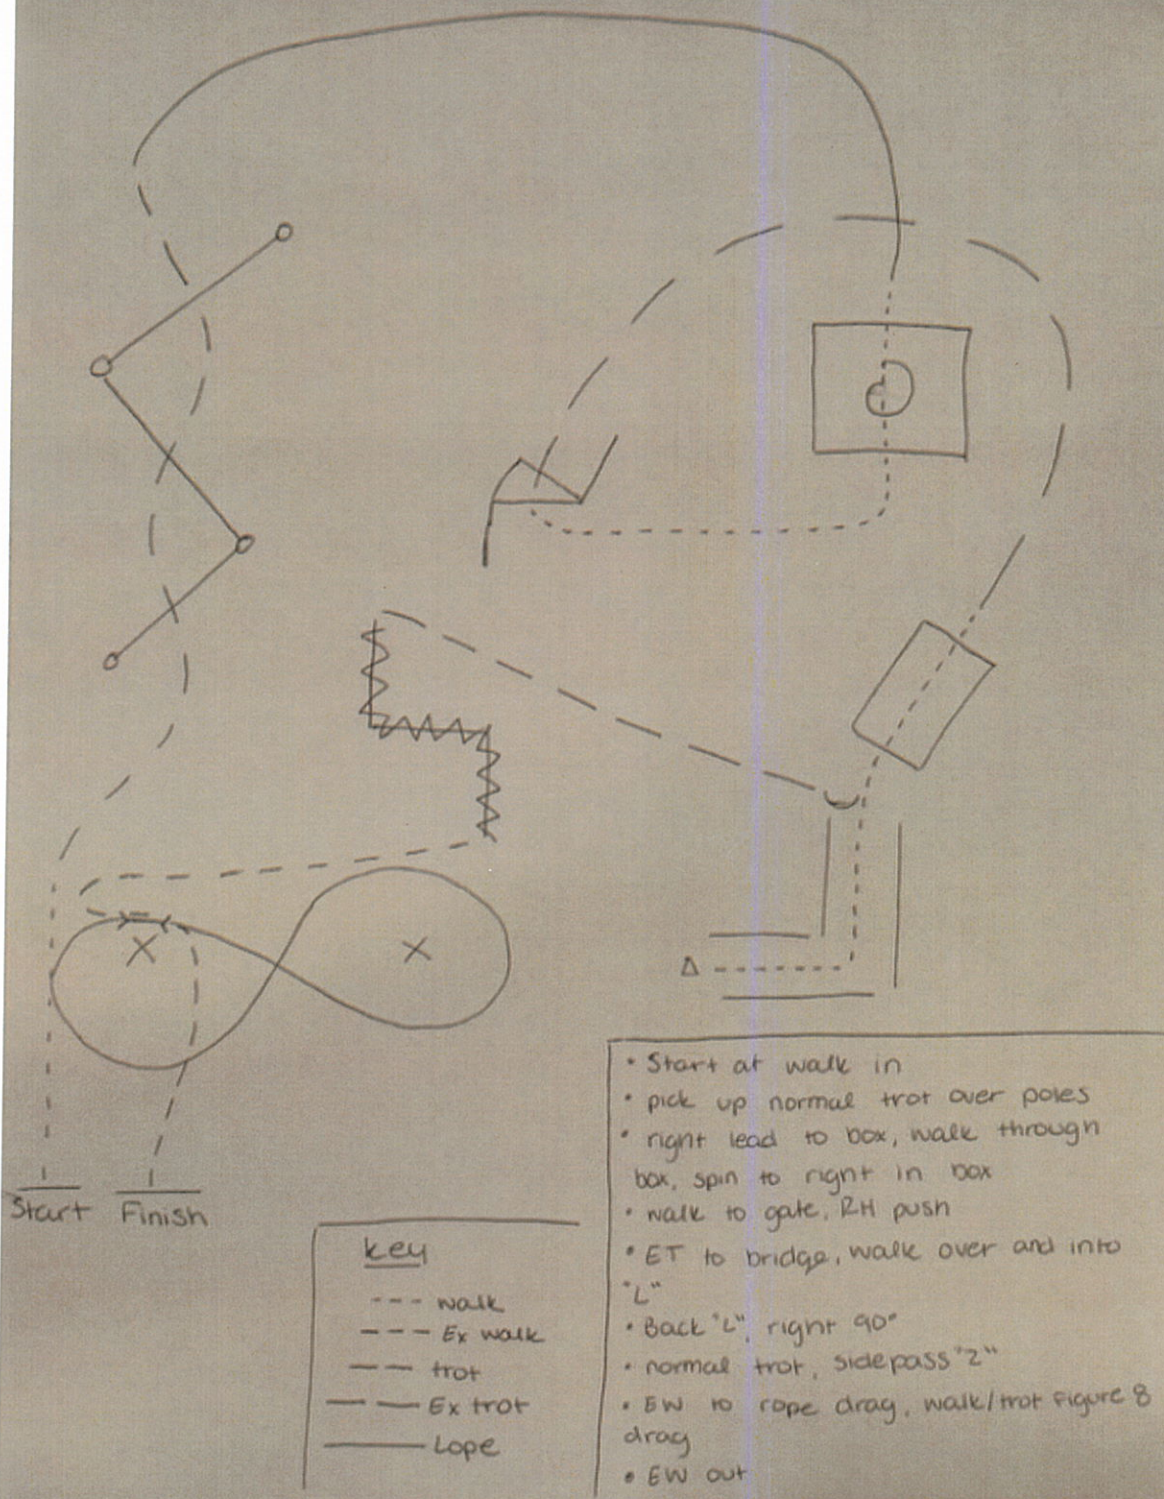 Start
Finish
key
walk
Ex walk
trot
Ex trot
Lope
• Start at walk in
• pick up normal trot over poles
• right lead to box, walk through
box, spin to right in box
• walk to gate, RH push
• ET to bridge, walk over and into
"L"
• Back "L", right 90°
• normal trot, sidepass "Z"
• EW to rope drag, walk/trot figure 8
drag
• EW out